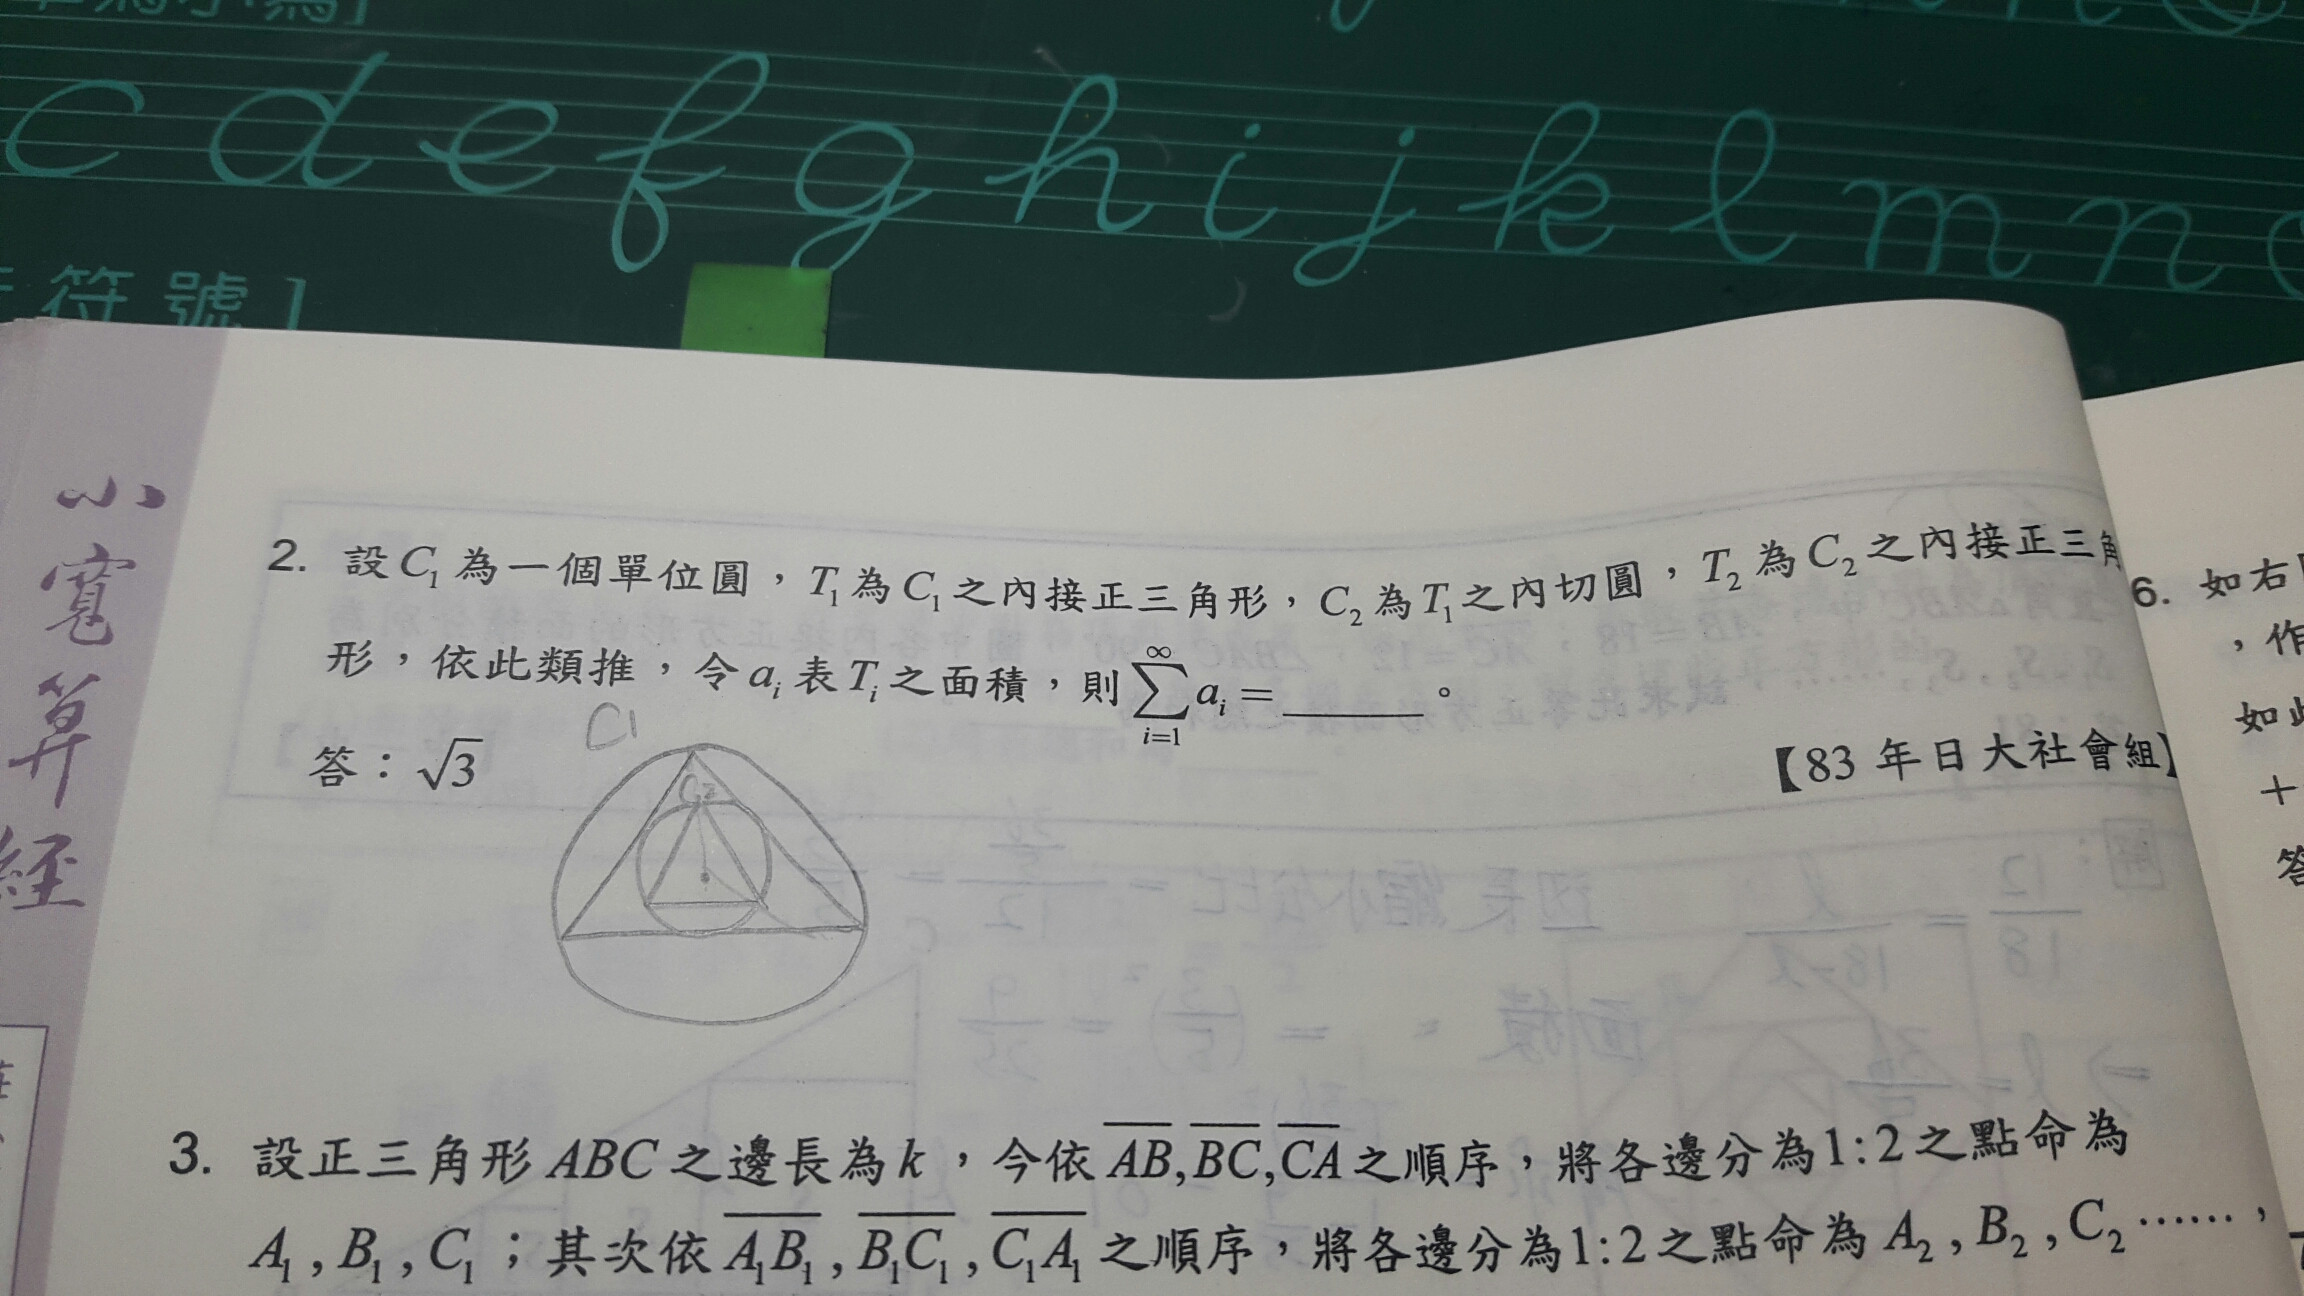 c d e f g h i j k l m n
符號]
小寬算經
2. 設C₁為一個單位圓，T₁為C₁之內接正三角形，C₂為T₁之內切圓，T₂為C₂之內接正三角
形，依此類推，令aᵢ表Tᵢ之面積，則∑_{i=1}^{∞} aᵢ = ______。
答：√3
【83 年日大社會組】
C1
C2
3. 設正三角形 ABC 之邊長為 k ，今依 \overline{AB}, \overline{BC}, \overline{CA} 之順序，將各邊分為1:2之點命為
A₁, B₁, C₁；其次依 \overline{A₁B₁}, \overline{B₁C₁}, \overline{C₁A₁} 之順序，將各邊分為1:2之點命為 A₂, B₂, C₂ ……，
6. 如右
，作
如此
+
答